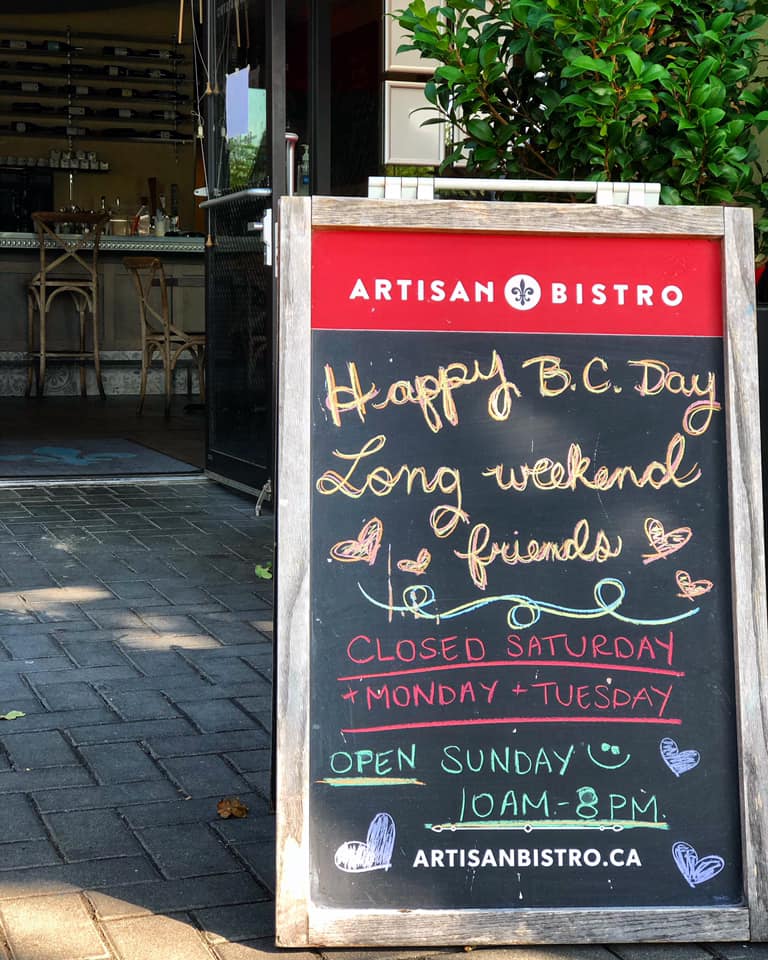 ARTISAN BISTRO
Happy B.C. Day
Long weekend
friends
CLOSED SATURDAY
+ MONDAY + TUESDAY
OPEN SUNDAY
10AM-8PM.
ARTISANBISTRO.CA